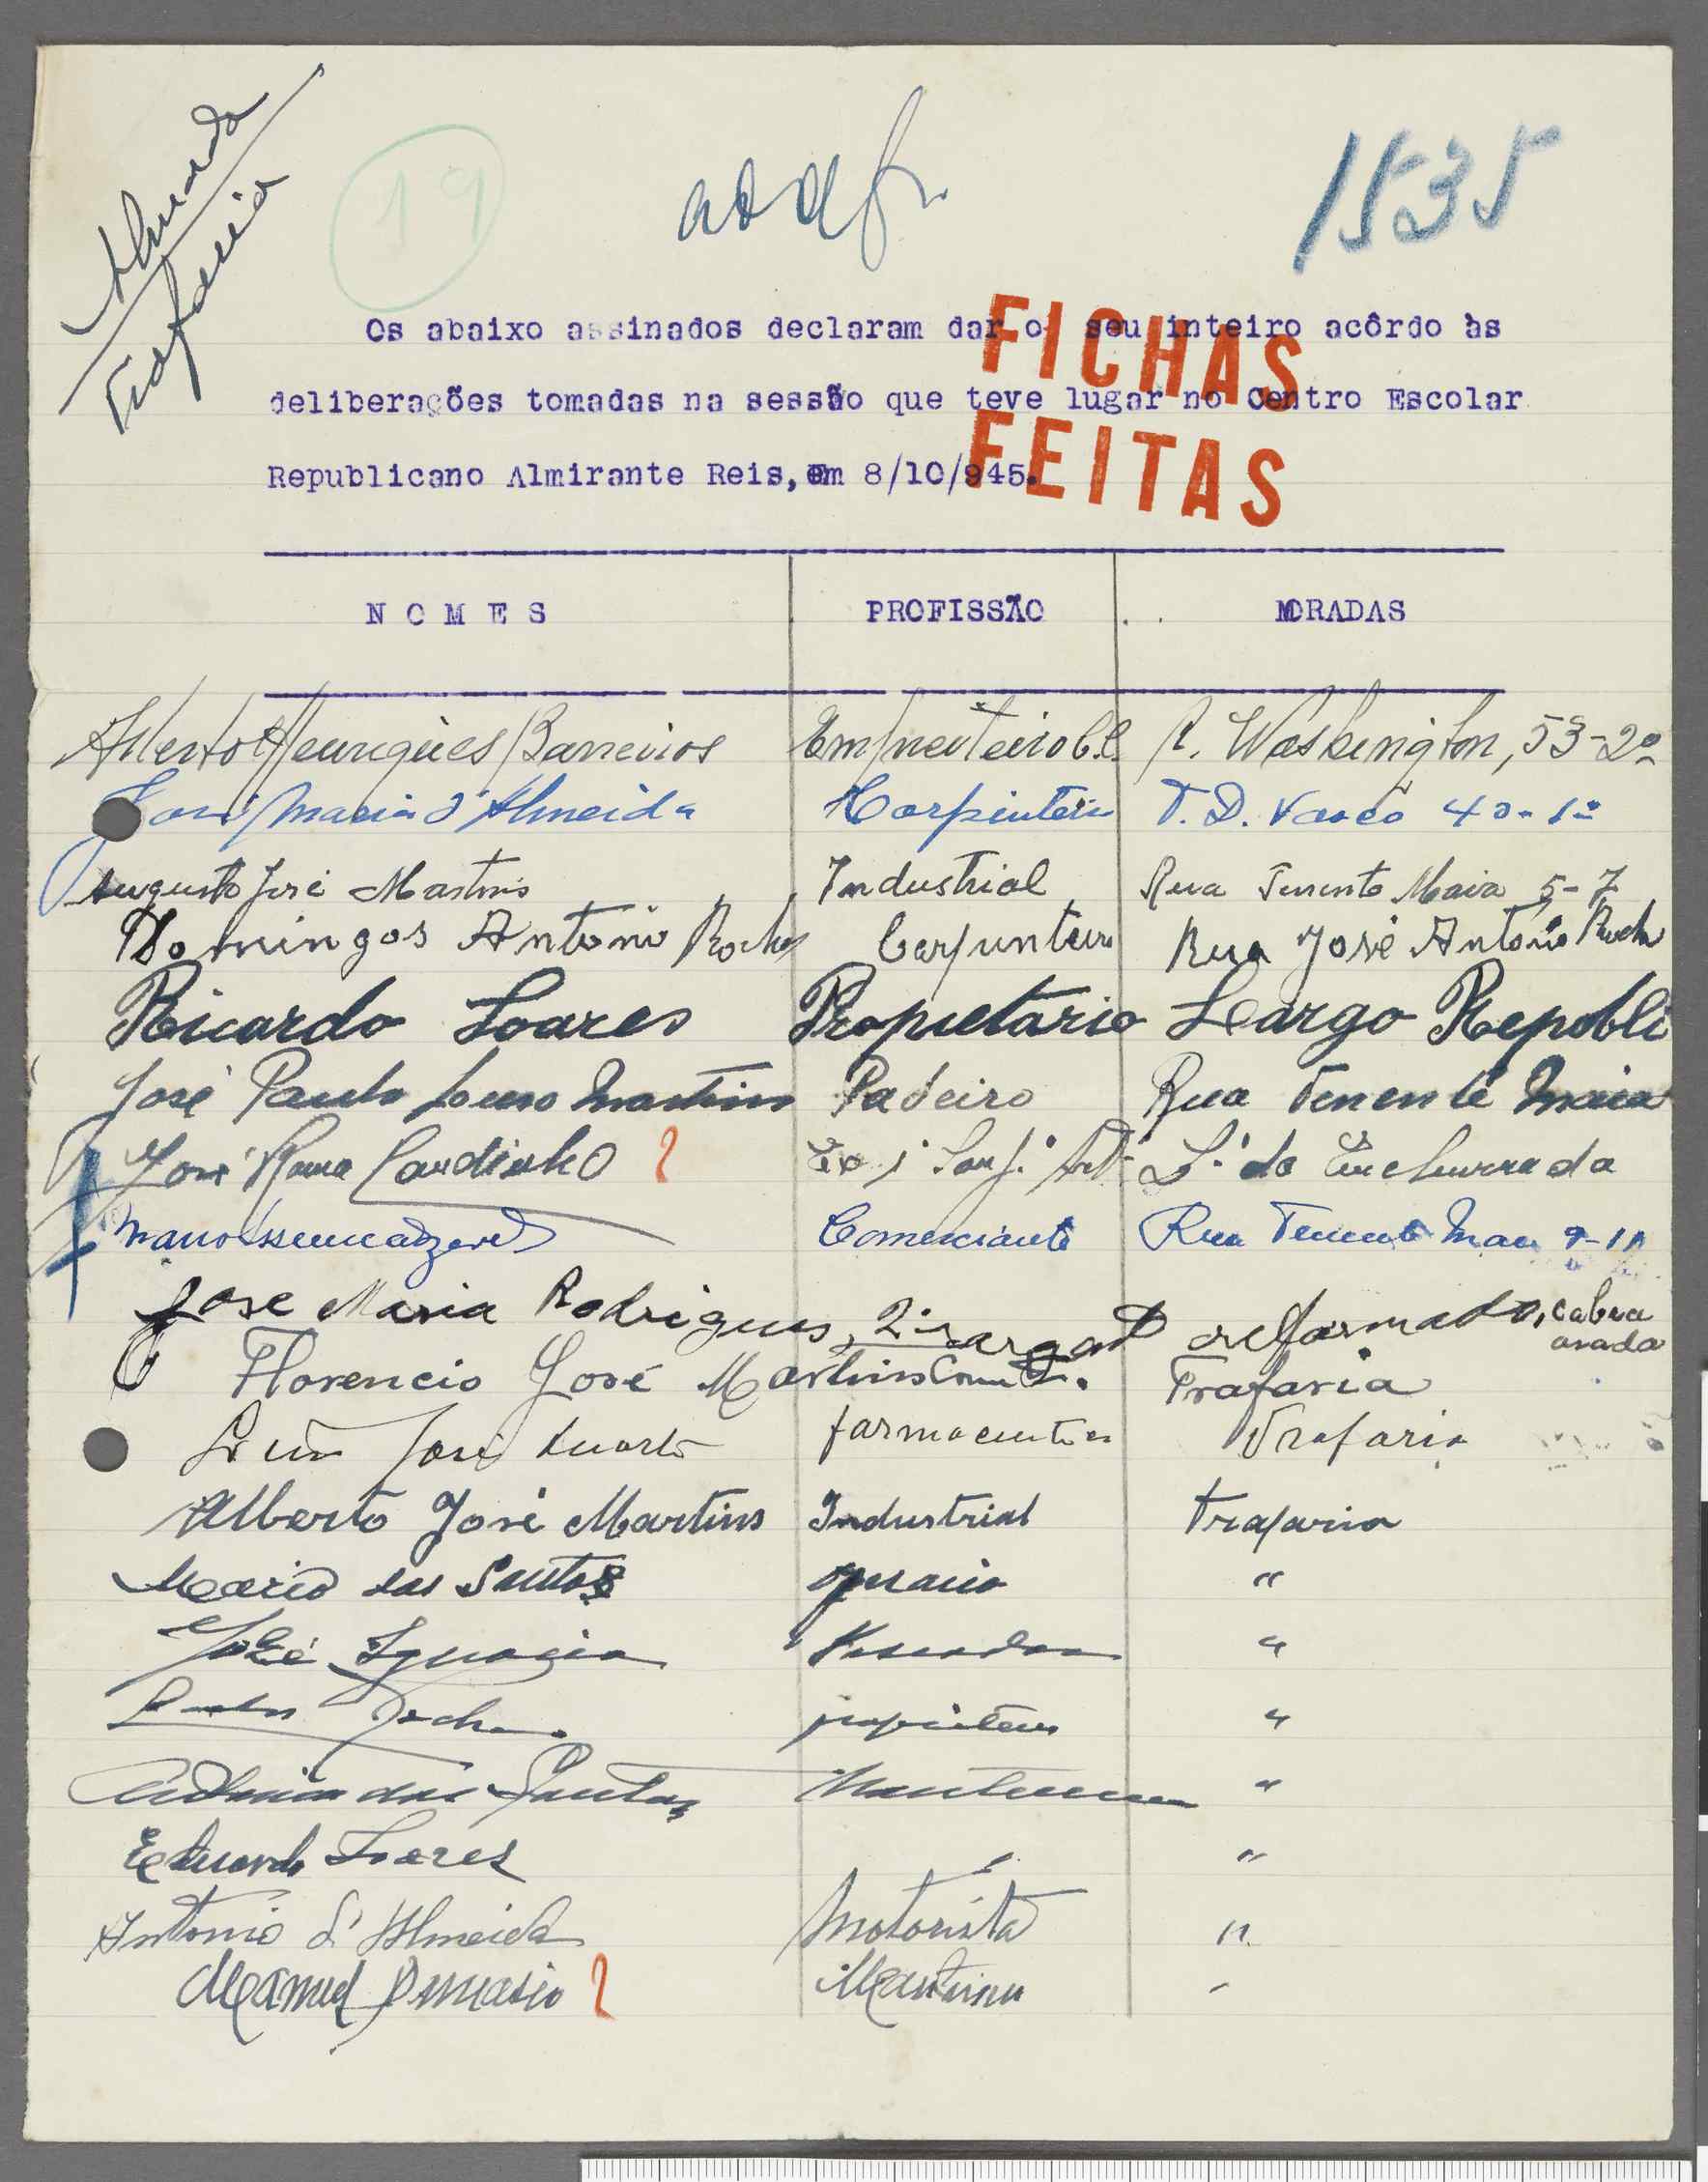 Almada
Trafaria
19
1535
Os abaixo assinados declaram dar o seu inteiro acôrdo às
deliberações tomadas na sessão que teve lugar no Centro Escolar
Republicano Almirante Reis, em 8/10/945.
FICHAS
FEITAS
NOMES PROFISSÃO MORADAS
Alberto Henriques Barreiros Empreiteiro C.C. R. Washington, 53-2º
José Maria d'Almeida Carpinteiro T. D. Vasco 40-1º
Augusto José Martins Industrial Rua Tenente Maia 5-7
Domingos António Rocha Carpinteiro Rua José António Rocha
Ricardo Soares Propietario Largo Republi
José Paulo Martins Padeiro Rua Tenente Maia
José Cardinho L. da Enchurrada
Comerciante Rua Tenente Maia 9-11
Jose Maria Rodrigues, 2º sargt reformado,
Florencio José Martins Trafaria
José Duarte farmaceutico Trafaria
Alberto José Martins Industrial Trafaria
Mario dos Santos operario "
José Ignacio Pescador "
Rocha "
dos Santos "
Eduardo Soares " "
Antonio d'Almeida Motorista "
Manuel Damasio Maritimo "